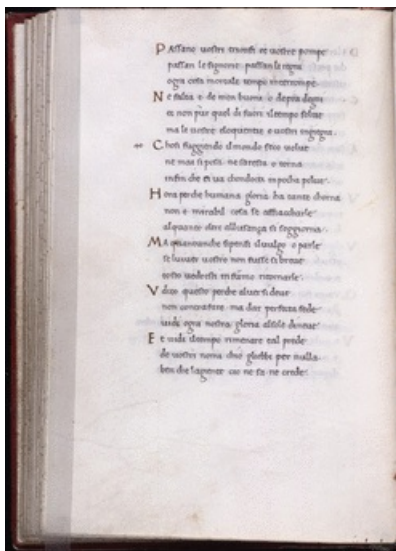 P Assano uostri triumfi et uostre pompe
passan le signorie passan le regna
ogni cosa mortale tempo interrompe
N e salta e de men buoni e de piu degni
et non pur quel di fuori il tempo solue
ma le uostre eloquentie e uostri ingegni
C hosi fuggendo il mondo seco uolue
ne mai si posa ne saresta o torna
infin che ui ha chondocti in pocha polue
H ora perche humana gloria ha tante chorna
non e mirabil cosa se affiaccharle
alquanto oltre allusanza si soggiorna
M A quanonche si pensi il uulgo o parle
se luiuer uostro non fusse si breue
tosto uedresti in fumo ritornarle
V dito questo perche al uer si deue
non contrastare ma dar perfecta fede
uidi ogni nostra gloria al sole di neue
E t uidi il tempo rimenare tal prede
de uostri nomi chio gli hebbi per nulla
ben che la gente cio ne sa ne crede